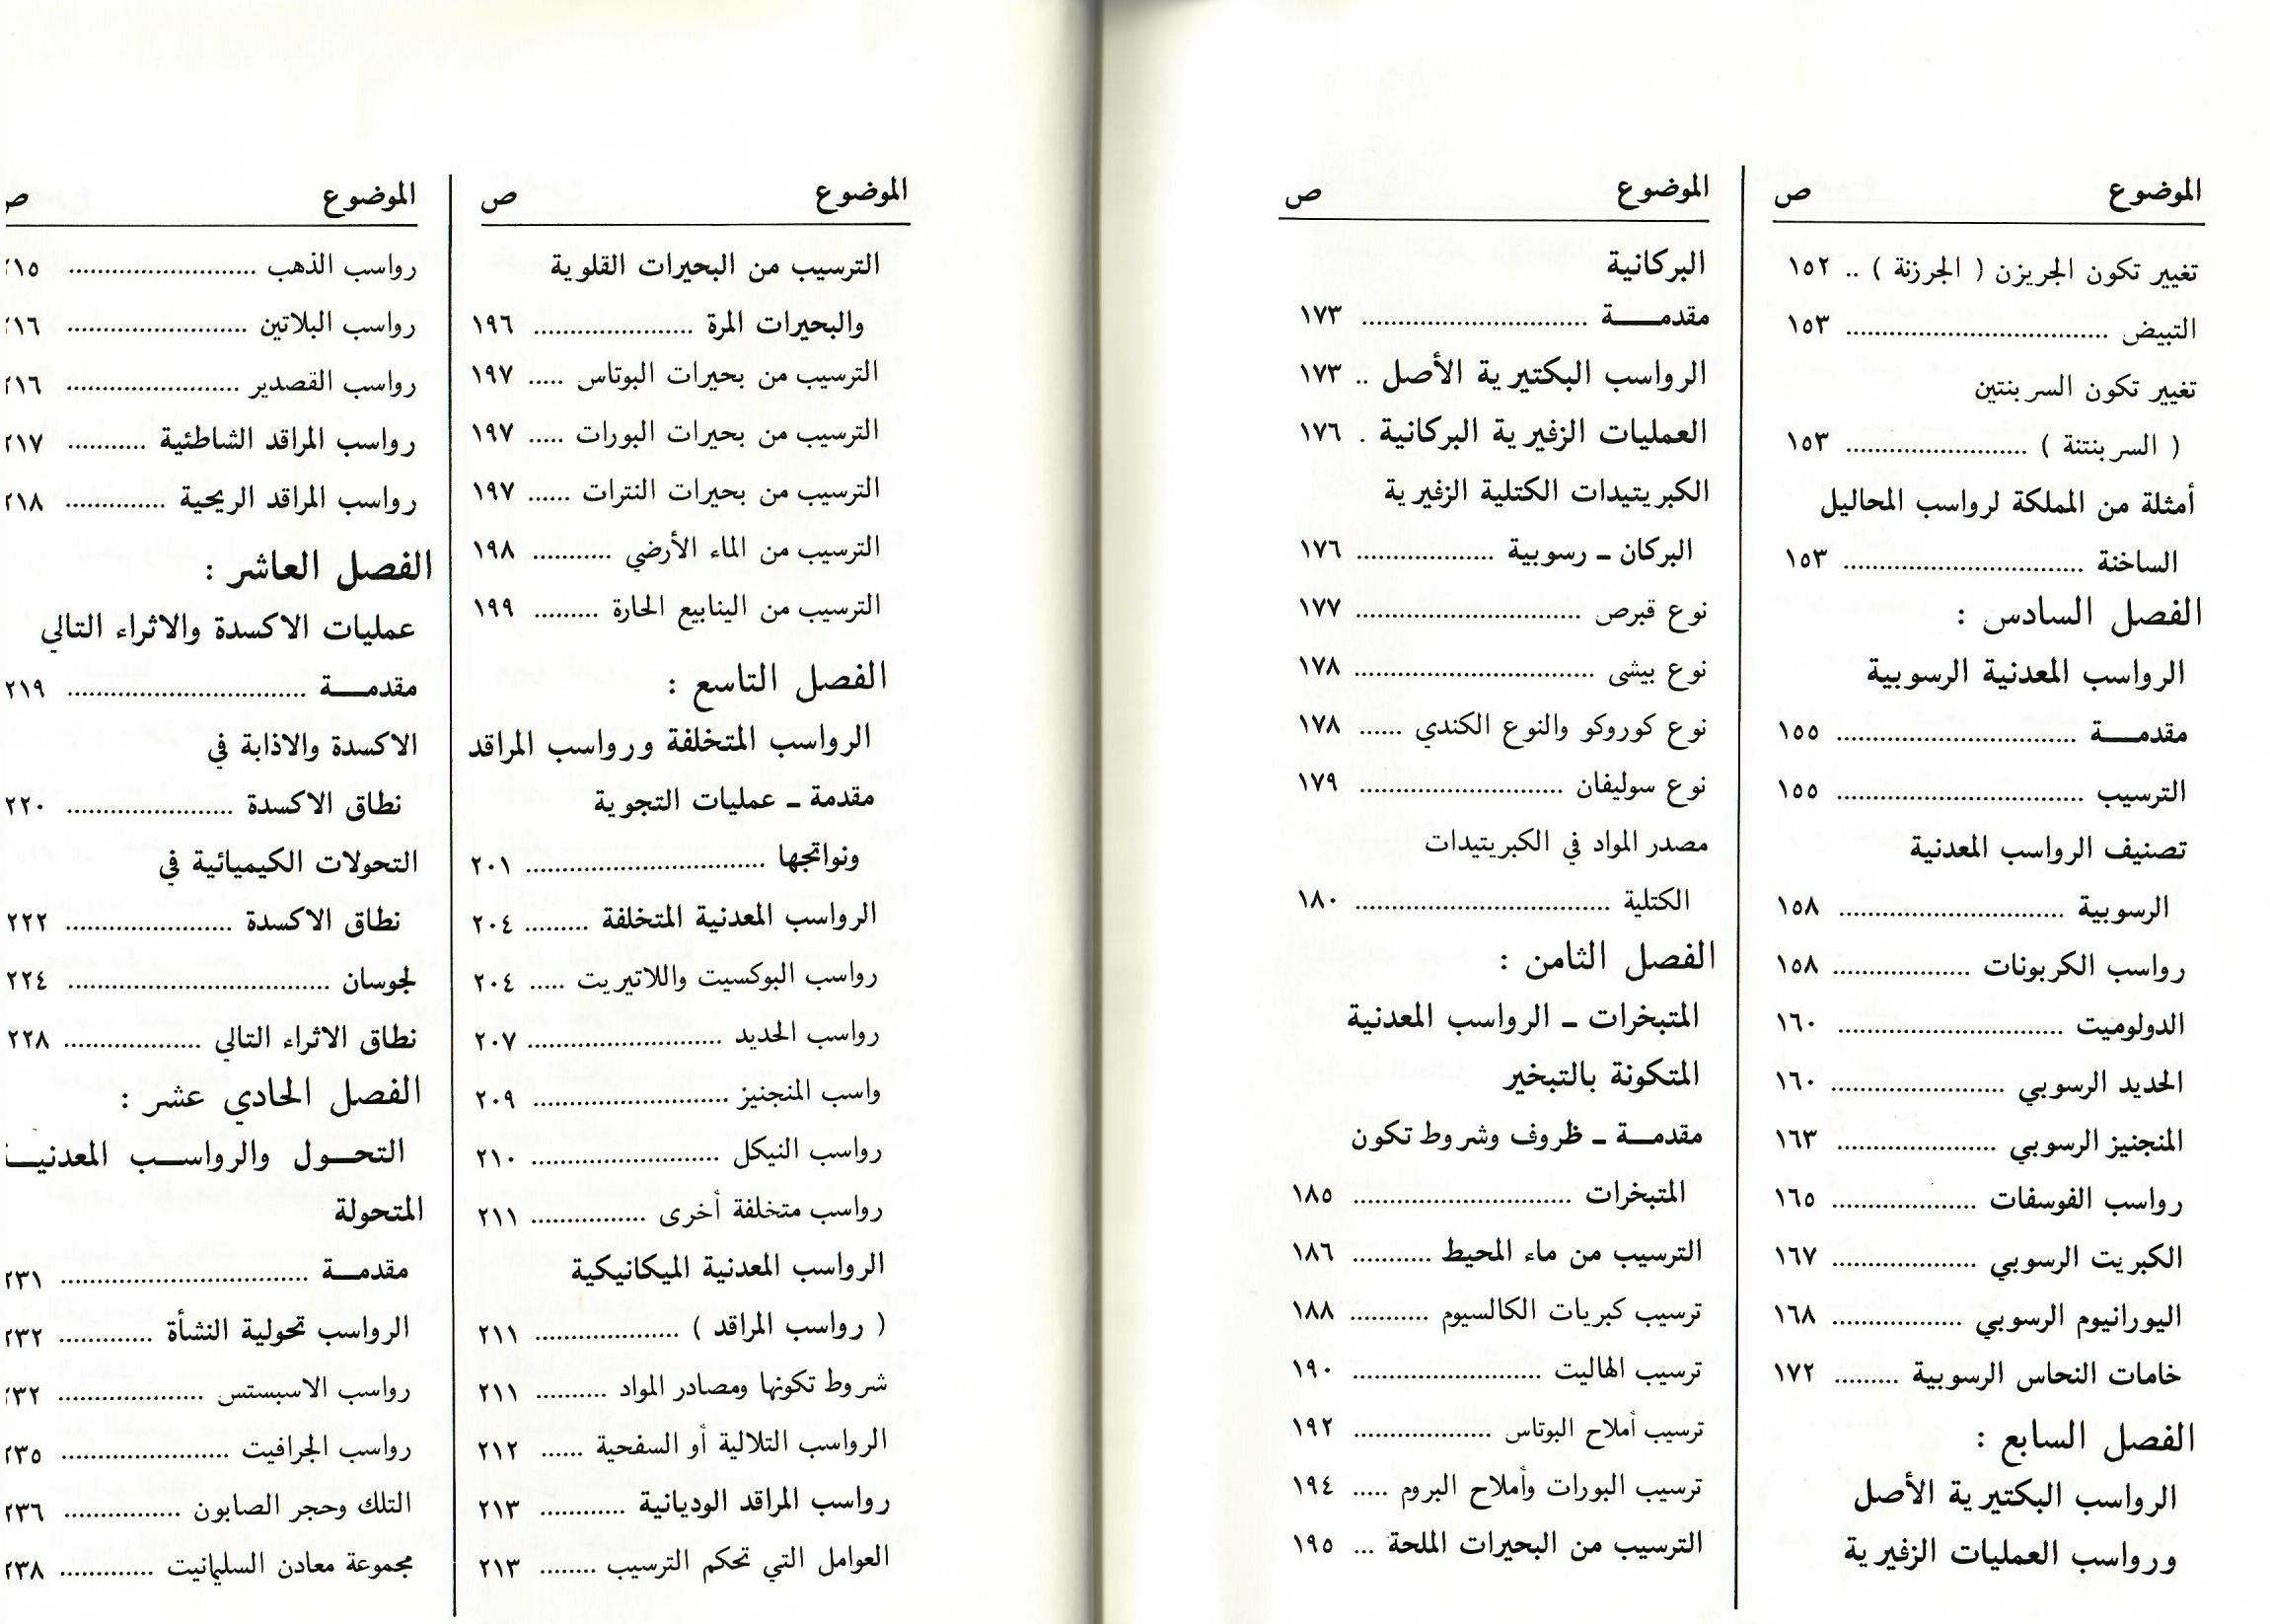 الموضوع ص
تغيير تكون الجريزن ( الجرزنة ) .. ١٥٢
التبيض .................................... ١٥٣
تغيير تكون السربنتين
( السربنتنة ) ......................... ١٥٣
أمثلة من المملكة لرواسب المحاليل
الساخنة ................................. ١٥٣
الفصل السادس :
الرواسب المعدنية الرسوبية
مقدمــــة ................................. ١٥٥
الترسيب .................................. ١٥٥
تصنيف الرواسب المعدنية
الرسوبية ............................... ١٥٨
رواسب الكربونات ................... ١٥٨
الدولوميت ............................... ١٦٠
الحديد الرسوبي ........................ ١٦٠
المنجنيز الرسوبي ...................... ١٦٣
رواسب الفوسفات .................... ١٦٥
الكبريت الرسوبي .................... ١٦٧
اليورانيوم الرسوبي .................. ١٦٨
خامات النحاس الرسوبية ......... ١٧٢
الفصل السابع :
الرواسب البكتيرية الأصل
ورواسب العمليات الزفيرية
الموضوع ص
البركانية
مقدمــــة ............................... ١٧٣
الرواسب البكتيرية الأصل .. ١٧٣
العمليات الزفيرية البركانية . ١٧٦
الكبريتيدات الكتلية الزفيرية
البركان ـ رسوبية ................... ١٧٦
نوع قبرص ............................... ١٧٧
نوع بيشى ................................. ١٧٨
نوع كوروكو والنوع الكندي ...... ١٧٨
نوع سوليفان ............................ ١٧٩
مصدر المواد في الكبريتيدات
الكتلية ................................... ١٨٠
الفصل الثامن :
المتبخرات ـ الرواسب المعدنية
المتكونة بالتبخير
مقدمــــة ـ ظروف وشروط تكون
المتبخرات .............................. ١٨٥
الترسيب من ماء المحيط ........... ١٨٦
ترسيب كبريات الكالسيوم ........... ١٨٨
ترسيب الهاليت .......................... ١٩٠
ترسيب أملاح البوتاس ................... ١٩٢
ترسيب البورات وأملاح البروم ..... ١٩٤
الترسيب من البحيرات الملحة ... ١٩٥
الموضوع ص
الترسيب من البحيرات القلوية
والبحيرات المرة ...................... ١٩٦
الترسيب من بحيرات البوتاس ..... ١٩٧
الترسيب من بحيرات البورات ..... ١٩٧
الترسيب من بحيرات النترات ...... ١٩٧
الترسيب من الماء الأرضي ........... ١٩٨
الترسيب من الينابيع الحارة ......... ١٩٩
الفصل التاسع :
الرواسب المتخلفة ورواسب المراقد
مقدمة ـ عمليات التجوية
ونواتجها ................................. ٢٠١
الرواسب المعدنية المتخلفة ......... ٢٠٤
رواسب البوكسيت واللاتيريت ..... ٢٠٤
رواسب الحديد ........................... ٢٠٧
واسب المنجنيز ........................... ٢٠٩
رواسب النيكل .......................... ٢١٠
رواسب متخلفة أخرى ................ ٢١١
الرواسب المعدنية الميكانيكية
( رواسب المراقد ) .................... ٢١١
شروط تكونها ومصادر المواد .......... ٢١١
الرواسب التلالية أو السفحية ...... ٢١٢
رواسب المراقد الوديانية ............ ٢١٣
العوامل التي تحكم الترسيب ........ ٢١٣
الموضوع ص
رواسب الذهب .......................... ٢١٥
رواسب البلاتين ......................... ٢١٦
رواسب القصدير ........................ ٢١٦
رواسب المراقد الشاطئية ........... ٢١٧
رواسب المراقد الريحية .............. ٢١٨
الفصل العاشر :
عمليات الاكسدة والاثراء التالي
مقدمــــة ................................. ٢١٩
الاكسدة والاذابة في
نطاق الاكسدة ....................... ٢٢٠
التحولات الكيميائية في
نطاق الاكسدة ....................... ٢٢٢
لجوسان .................................... ٢٢٤
نطاق الاثراء التالي ................... ٢٢٨
الفصل الحادي عشر :
التحــول والرواســب المعدنيــة
المتحولة
مقدمــــة .................................. ٢٣١
الرواسب تحولية النشأة ............. ٢٣٢
رواسب الاسبستس .................... ٢٣٢
رواسب الجرافيت ....................... ٢٣٥
التلك وحجر الصابون ................ ٢٣٦
مجموعة معادن السليمانيت ............. ٢٣٨